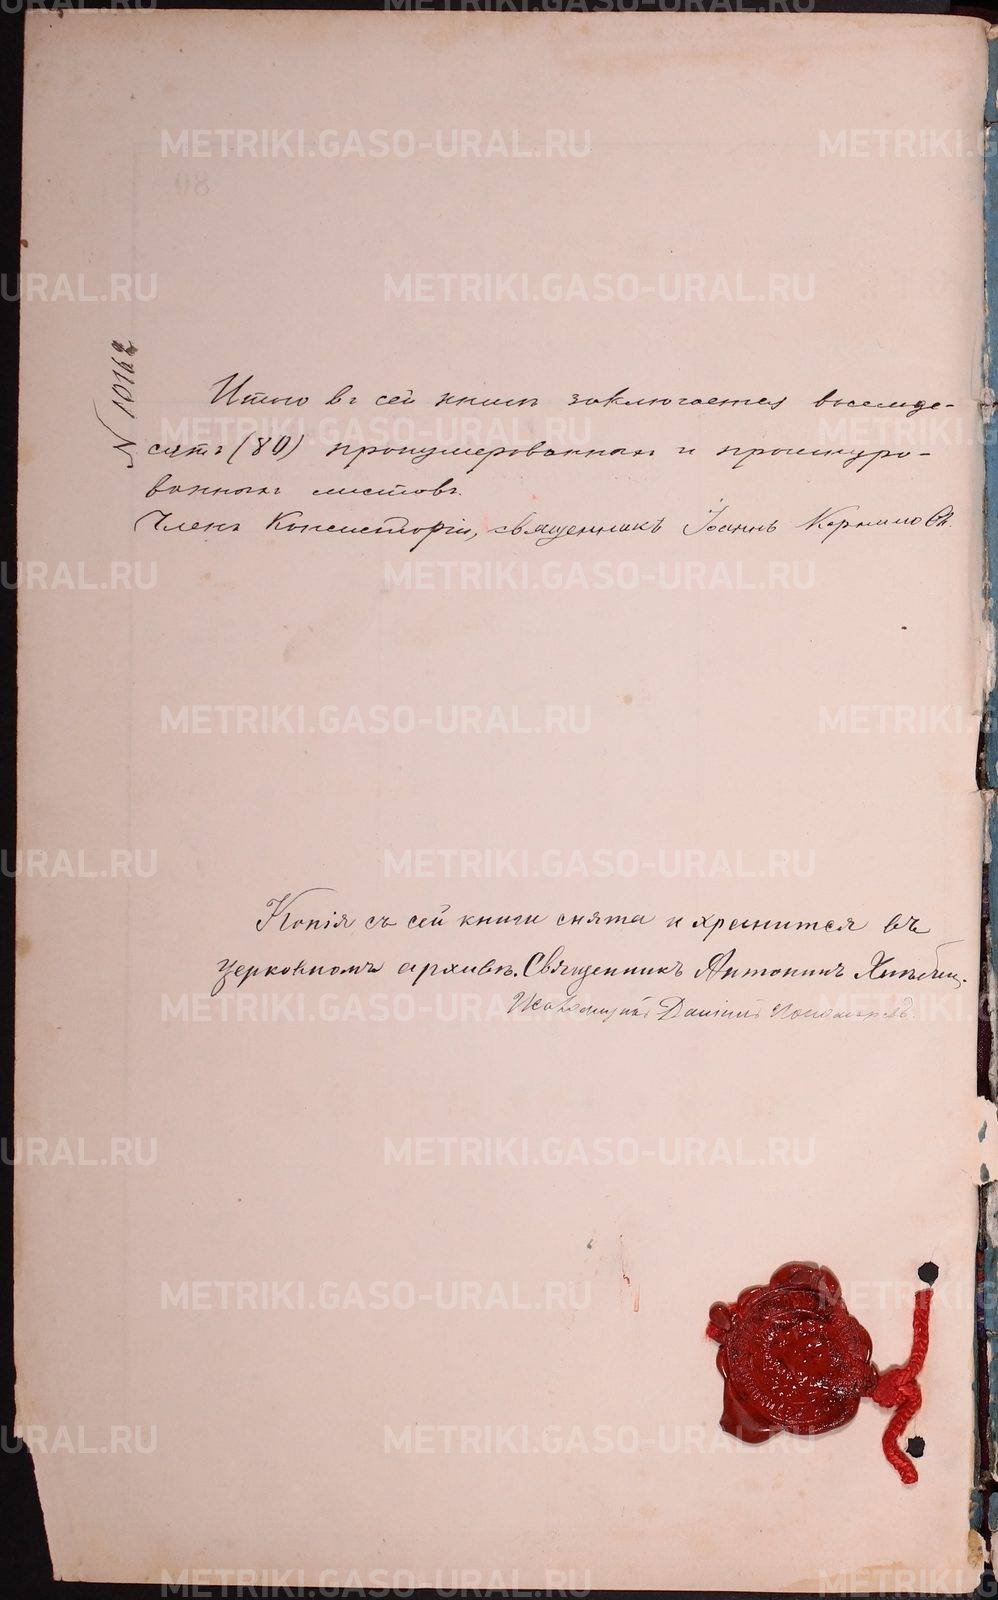 № 10162
Итого въ сей книгѣ заключается восемьде-
сятъ (80) пронумерованныхъ и прошнуро-
ванныхъ листовъ.
Членъ Консисторіи, священникъ Іоаннъ
Копія съ сей книги снята и хранится въ
церковномъ архивѣ. Священникъ Антонинъ
Псаломщикъ Даніилъ Пономаревъ.
METRIKI.GASO-URAL.RU